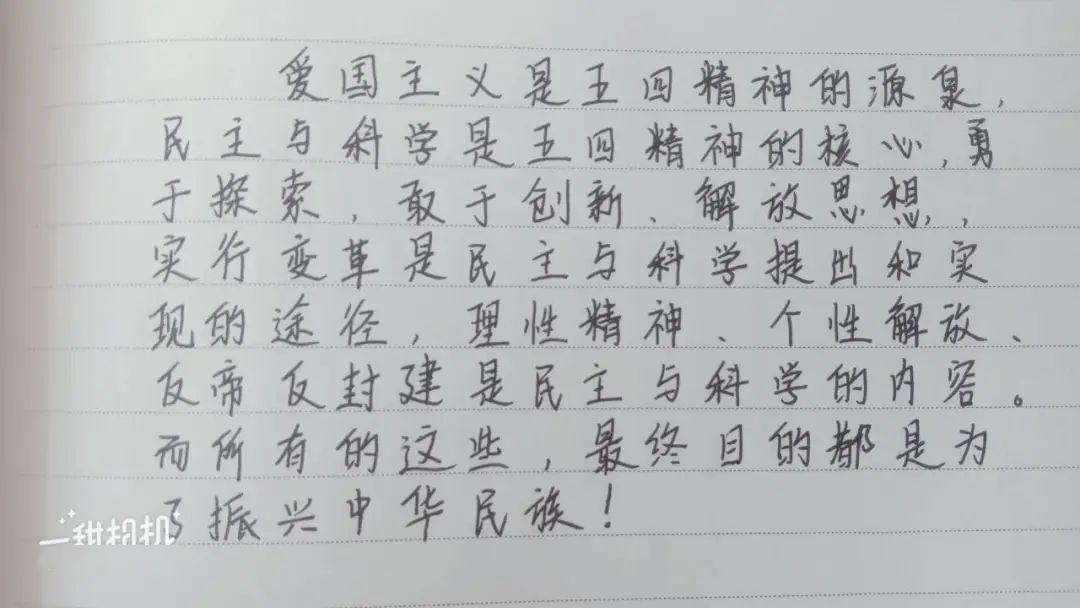 爱国主义是五四精神的源泉，
民主与科学是五四精神的核心，勇
于探索，敢于创新、解放思想，
实行变革是民主与科学提出和实
现的途径，理性精神、个性解放、
反帝反封建是民主与科学的内容。
而所有的这些，最终目的都是为
了振兴中华民族！
一甜相机